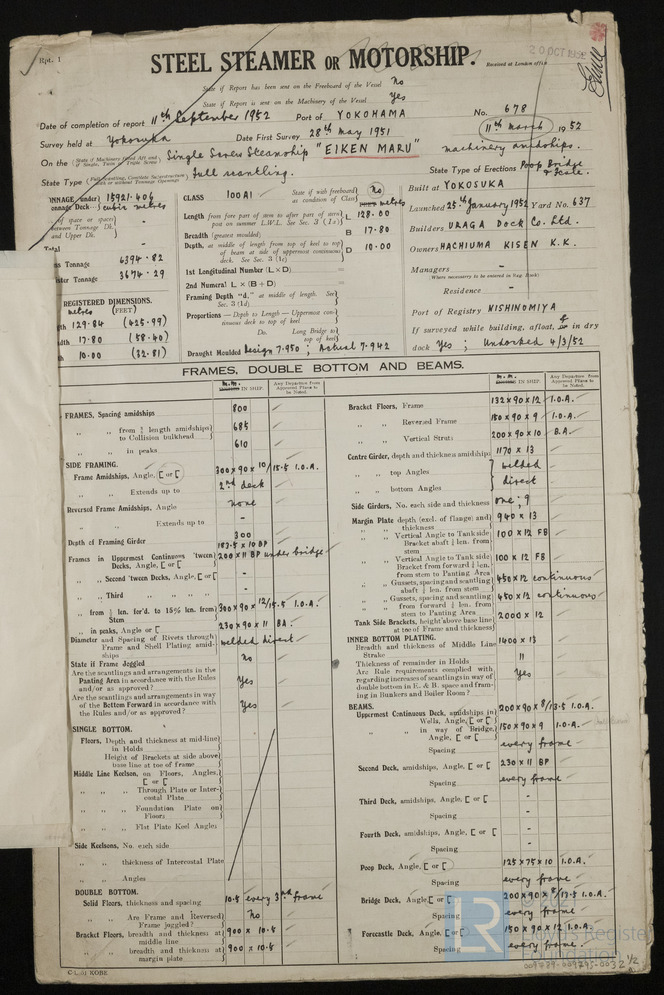 Rpt. 1
STEEL STEAMER OR MOTORSHIP.
20 OCT 1952
Received at London office
State if Report has been sent on the Freeboard of the Vessel No
State if Report is sent on the Machinery of the Vessel Yes
Date of completion of report 11th September 1952 Port of YOKOHAMA No. 678
Survey held at Yokosuka Date First Survey 28th May 1951 11th March 1952
On the Single Screw Steamship "EIKEN MARU" machinery amidships.
State Type full scantling. State Type of Erections Poop Bridge & Fcsle.
TONNAGE under Tonnage Deck 15921.406 cubic metres
CLASS 100A1 State if with freeboard as condition of Class No
Built at YOKOSUKA
Launched 25th January 1952 Yard No. 637
Builders URAGA Dock Co. Ltd.
Owners HACHIUMA KISEN K.K.
Managers -
(Where necessary to be entered in Reg. Book)
Residence -
Port of Registry NISHINOMIYA
If surveyed while building, afloat, or in dry
dock Yes ; Undocked 4/3/52
of space or spaces between Tonnage Dk. and Upper Dk. -
Total
Gross Tonnage 6394.82
Register Tonnage 3674.29
REGISTERED DIMENSIONS.
metres (FEET)
129.84 (425.99)
17.80 (58.40)
10.00 (32.81)
metres
Length from fore part of stem to after part of stern post on summer L.W.L. See Sec. 3 (1a) L 128.00
Breadth (greatest moulded) B 17.80
Depth, at middle of length from top of keel to top of beam at side of uppermost continuous deck. See Sec. 3 (1c) D 10.00
1st Longitudinal Number (L×D)
2nd Numeral L×(B+D)
Framing Depth "d," at middle of length. See Sec. 3 (1d)
Proportions—Depth to Length—Uppermost continuous deck to top of keel
Do. Long Bridge to top of keel
Draught Moulded Design 7.950 ; Actual 7.942
FRAMES, DOUBLE BOTTOM AND BEAMS.
M.M. IN SHIP. Any Departure from Approved Plans to be Noted.
FRAMES, Spacing amidships 800
" " from 3/5 length amidships to Collision bulkhead 685
" " in peaks 610
SIDE FRAMING.
Frame Amidships, Angle, [ or [ 300 x 90 x 10/15.5 I.O.A.
" " Extends up to 2nd deck
Reversed Frame Amidships, Angle none
" " Extends up to -
Depth of Framing Girder 300
Frames in Uppermost Continuous 'tween Decks, Angle, [ or [ 200 x 11 BP under bridge
" " Second 'tween Decks, Angle, [ or [ -
" " Third " " " -
" " from 3/5 len. for'd. to 15% len. from Stem 300 x 90 x 12/15.5 I.O.A.
" " in peaks, Angle or [ 230 x 90 x 11 BA.
Diameter and Spacing of Rivets through Frame and Shell Plating amidships welded direct
State if Frame Joggled No
Are the scantlings and arrangements in the Panting Area in accordance with the Rules and/or as approved? Yes
Are the scantlings and arrangements in way of the Bottom Forward in accordance with the Rules and/or as approved? Yes
SINGLE BOTTOM.
Floors, Depth and thickness at mid-line in Holds
Height of Brackets at side above base line at toe of frame
Middle Line Keelson, on Floors, Angles, [ or [
" " Through Plate or Intercostal Plate
" " Foundation Plate on Floors
" " Flat Plate Keel Angles
Side Keelsons, No. each side
" " thickness of Intercostal Plate
" " Angles
DOUBLE BOTTOM.
Solid Floors, thickness and spacing 10.5 every 3rd frame
" " Are Frame and Reversed Frame joggled? No
Bracket Floors, breadth and thickness at middle line 900 x 10.5
" " breadth and thickness at margin plate 900 x 10.5
M.M. IN SHIP. Any Departure from Approved Plans to be Noted.
Bracket Floors, Frame 132 x 90 x 12 I.O.A.
" " Reversed Frame 150 x 90 x 9 I.O.A.
" " Vertical Struts 200 x 90 x 10 B.A.
Centre Girder, depth and thickness amidships 1170 x 13
" " top Angles welded
" " bottom Angles direct
Side Girders, No. each side and thickness one ; 9
Margin Plate depth (excl. of flange) and thickness 940 x 13
" " Vertical Angle to Tank side Bracket abaft 1/4 len. from stem 100 x 12 FB
" " Vertical Angle to Tank side Bracket from forward 1/4 len. from stem to Panting Area 100 x 12 FB
" " Gussets, spacing and scantling abaft 1/4 len. from stem 450 x 12 continuous
" " Gussets, spacing and scantling from forward 1/4 len. from stem to Panting Area 450 x 12 continuous
Tank Side Brackets, height above base line at toe of Frame and thickness 2000 x 12
INNER BOTTOM PLATING.
Breadth and thickness of Middle Line Strake 1400 x 13
Thickness of remainder in Holds 11
Are Rule requirements complied with regarding increases of scantlings in way of double bottom in E. & B. space and framing in Bunkers and Boiler Room? Yes
BEAMS.
Uppermost Continuous Deck, amidships in Wells, Angle, [ or [ 200 x 90 x 8/13.5 I.O.A.
" " in way of Bridge, Angle, [ or [ 150 x 90 x 9 I.O.A.
Spacing every frame
Second Deck, amidships, Angle, [ or [ 230 x 11 BP
Spacing every frame
Third Deck, amidships, Angle, [ or [ -
Spacing -
Fourth Deck, amidships, Angle, [ or [ -
Spacing -
Poop Deck, Angle, [ or [ 125 x 75 x 10 I.O.A.
Spacing every frame
Bridge Deck, Angle, [ or [ 200 x 90 x 8/13.5 I.O.A.
Spacing every frame
Forecastle Deck, Angle, [ or [ 150 x 90 x 12 I.O.A.
Spacing every frame.
C.L. 51 KOBE
LR
Lloyd's Register
Foundation
009239-009245-0032 1/2